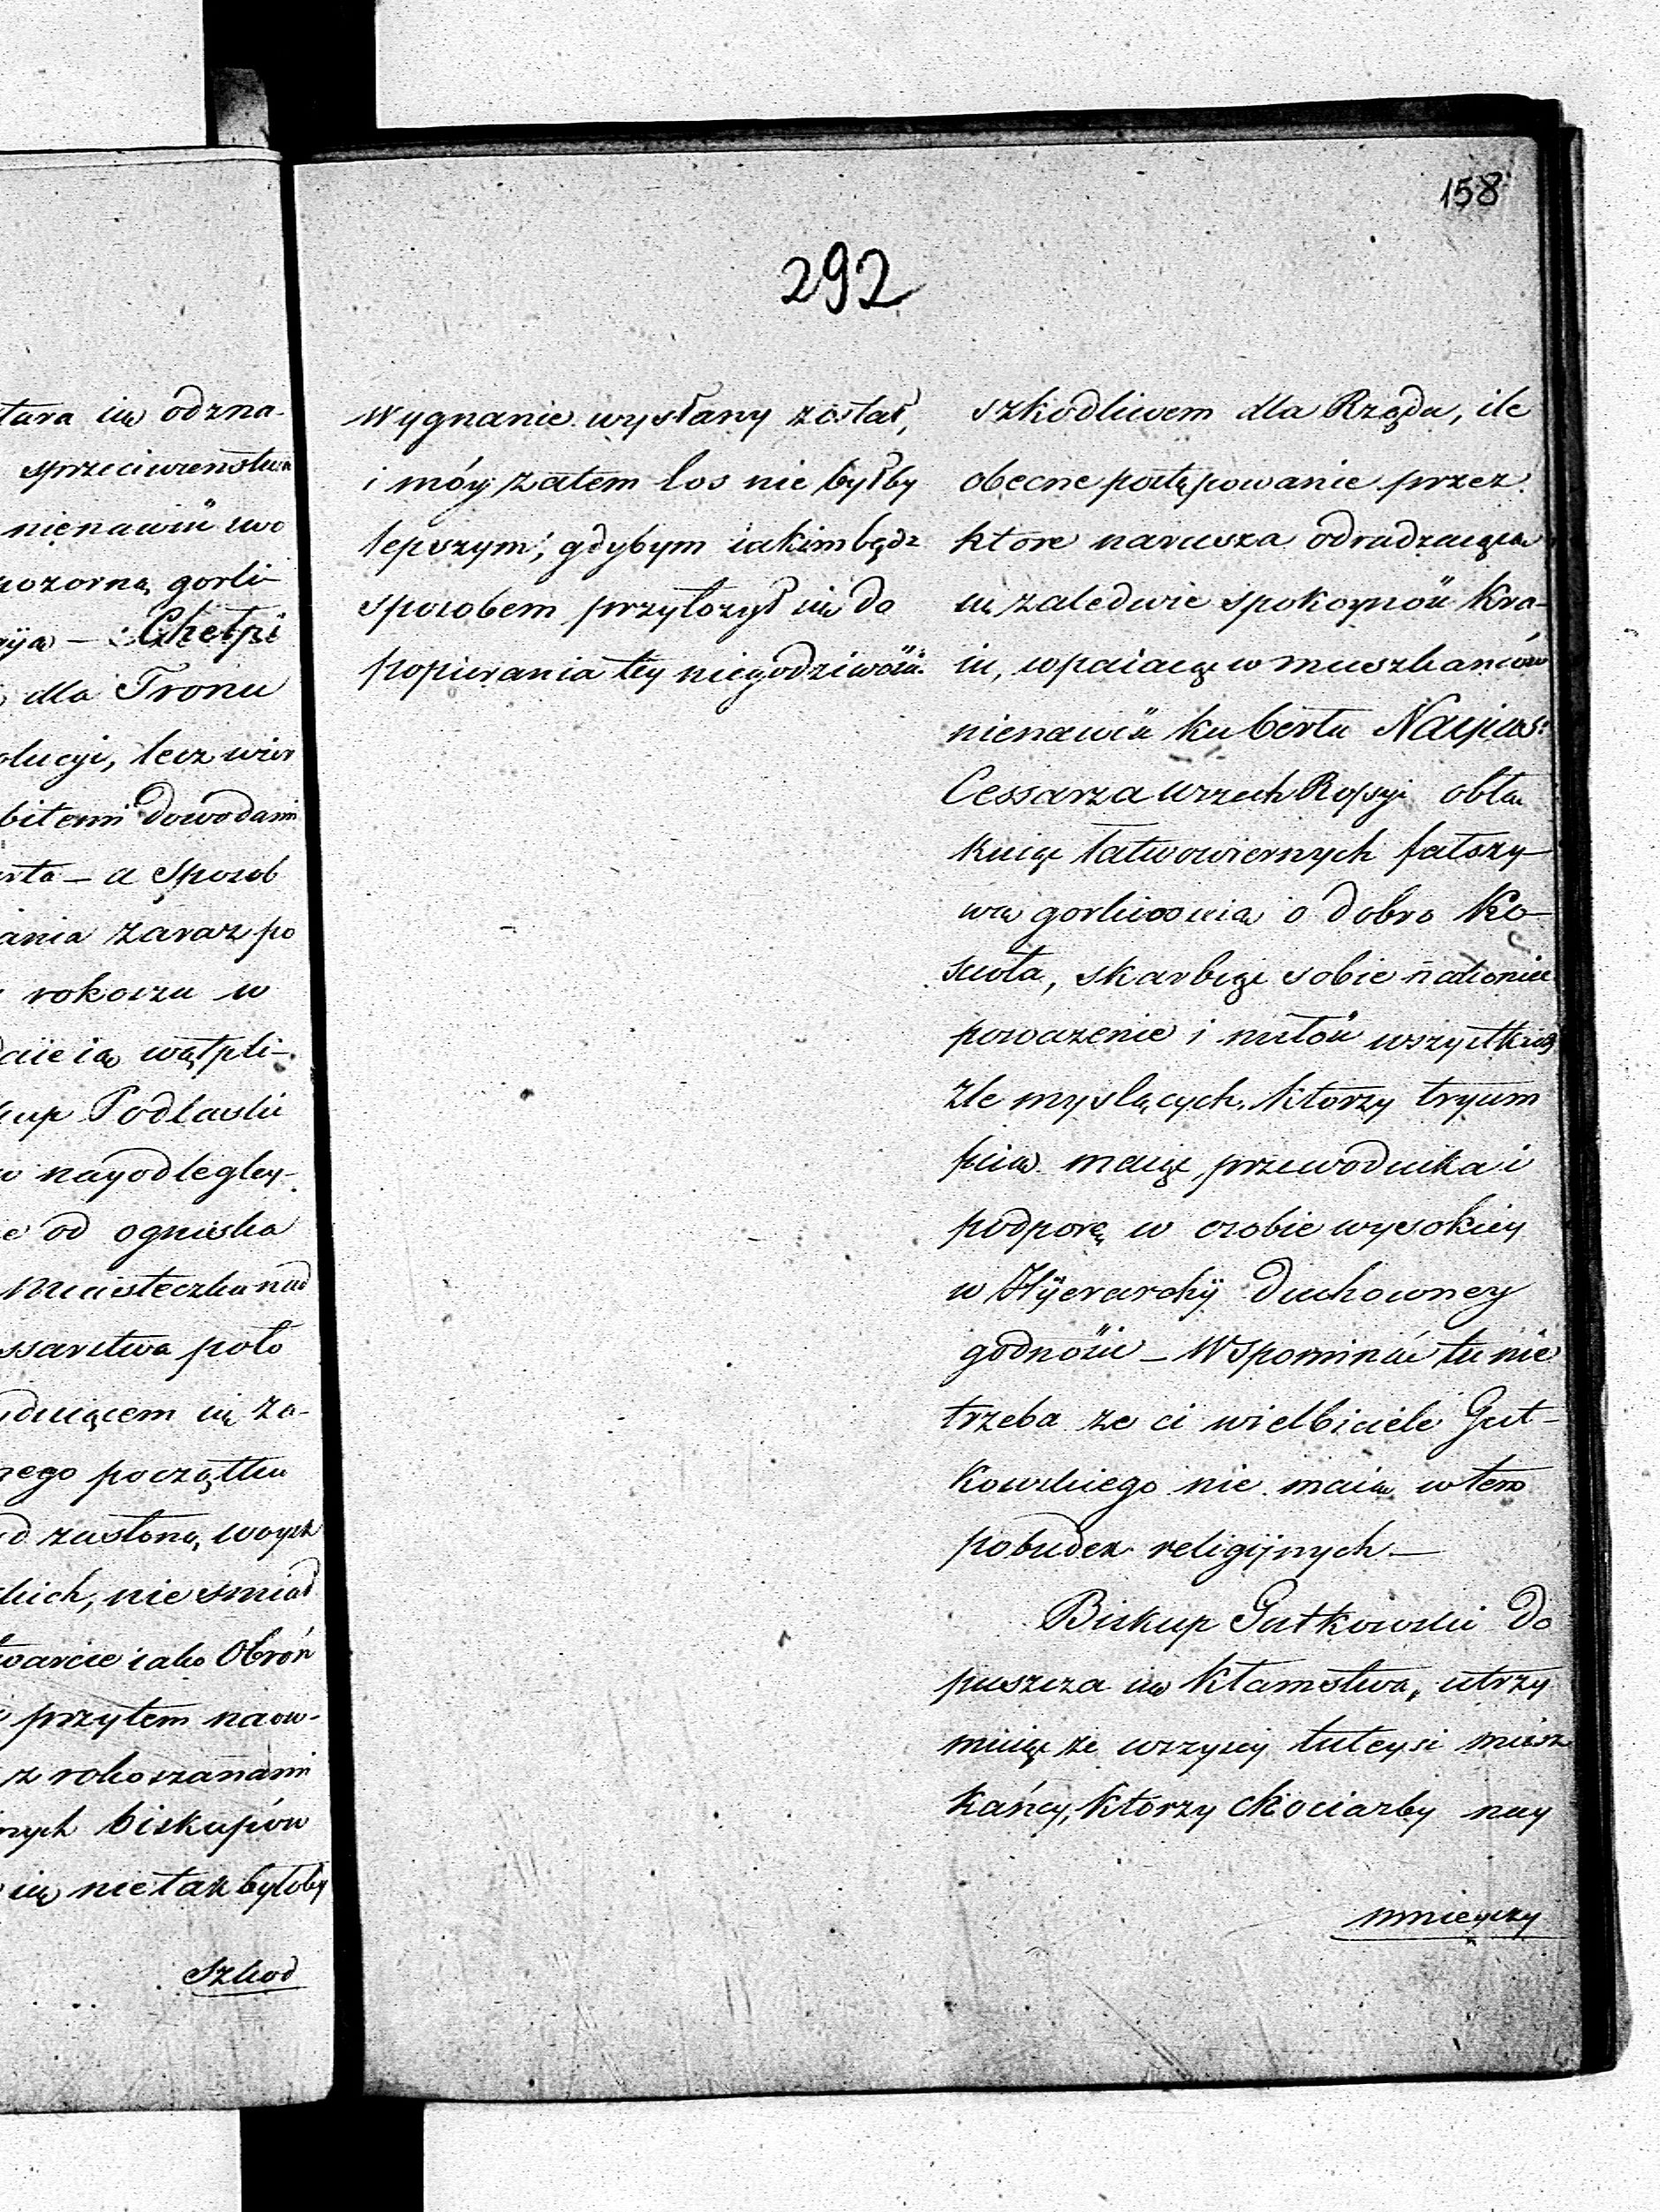 158
292
tura się odzna-
sprzeciwieństwa
nienawiść swo
pozorną gorli-
Chełpi
dla Tronu
olucyi, lecz wier
bitemi dowodami
a sposob
ania zaraz po
rokoszu w
wątpli-
kup Podlaski
nayodlegley-
od ogniska
Miasteczku nad
ssarstwa poło
się za-
nego początku
zasłoną woysk
kich, nie śmiał
twarcie iako Obroń
przytem naow-
z rokoszanami
nych biskupów
się nie tak byłoby
szkod
Wygnanie wysłany został,
i móy zatem los nie byłby
lepszym, gdybym iakimbądz
sposobem przyłożył się do
popierania tey niegodziwości.
szkodliwem dla Rządu, ile
obecne postępowanie przez
ktore narusza odradzaiąca
się zaledwie spokoyność Kra-
iu, wpaiaiąc w mieszkańców
nienawiść ku berłu Nayias:
Cessarza Wszech Rossyi obła
kuiąc łatwowiernych fałszy-
wą gorliwością o dobro Ko-
scioła, skarbiąc sobie nakoniec
poważenie i miłość wszystkich
źle myslących, ktorzy tryum
fuią maiąc przewodnika i
podporę w osobie wysokiey
w Hÿerarchÿ Duchowney
godności – Wspominać tu nie
trzeba ze ci wielbiciele Gut-
kowskiego nie maią w tem
pobudek religijnych –
Biskup Gutkowski do
puszcza się kłamstwa, utrzy
muiąc że wszyscy tuteysi miesz
kańcy, ktorzy chociażby nay
mnieyszy